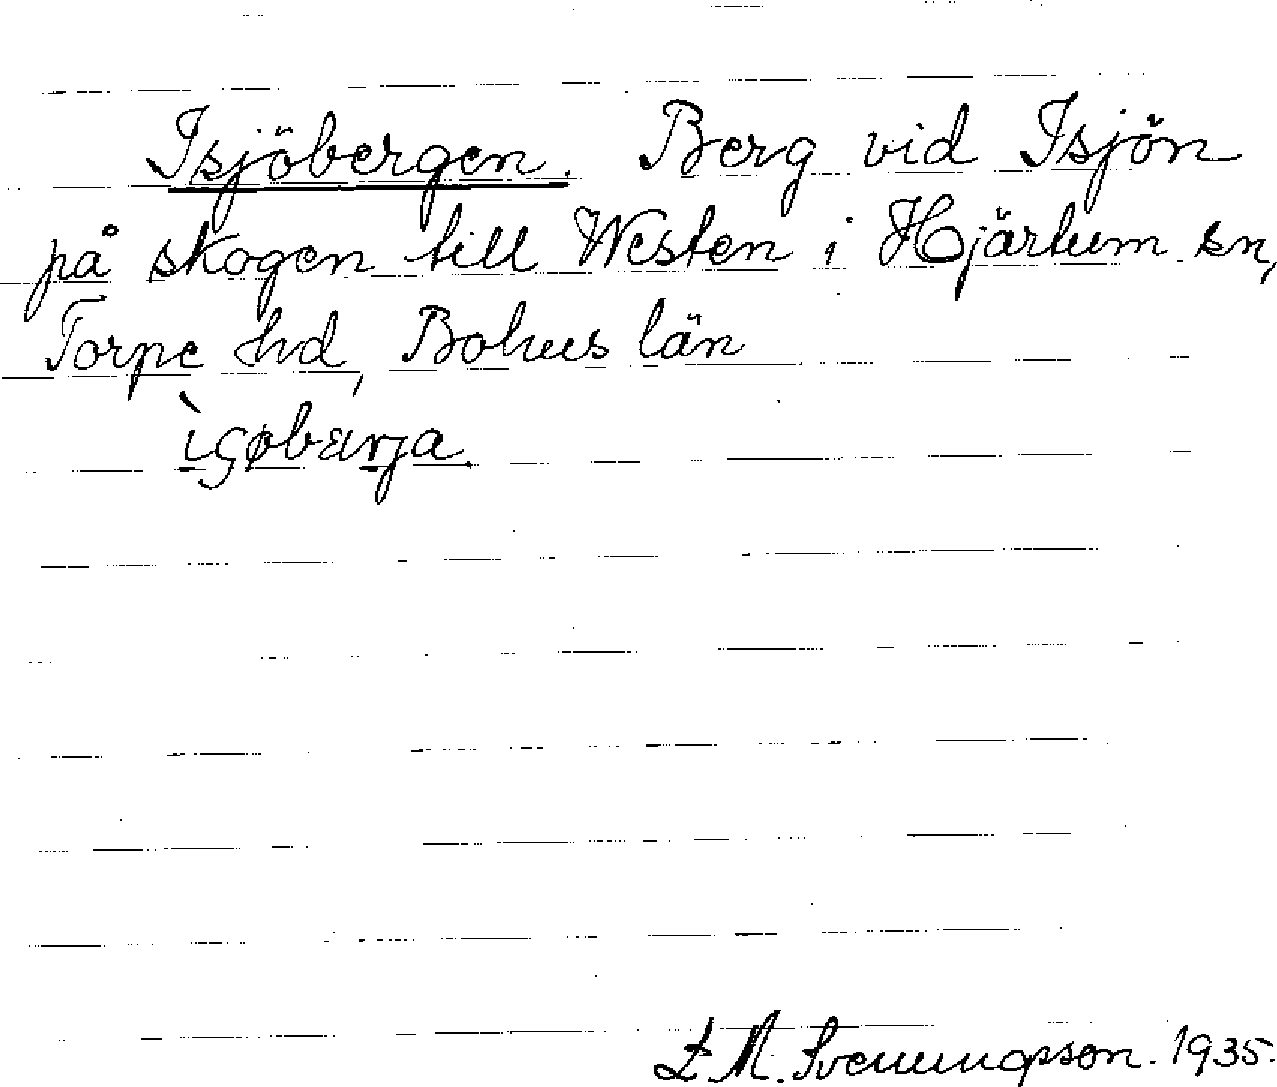 Isjöbergen. Berg vid Isjön
på skogen till Westen i Hjärtum sn,
Torpe hd, Bohus län
ìʂøbærja.
M. Svenungsson. 1935.